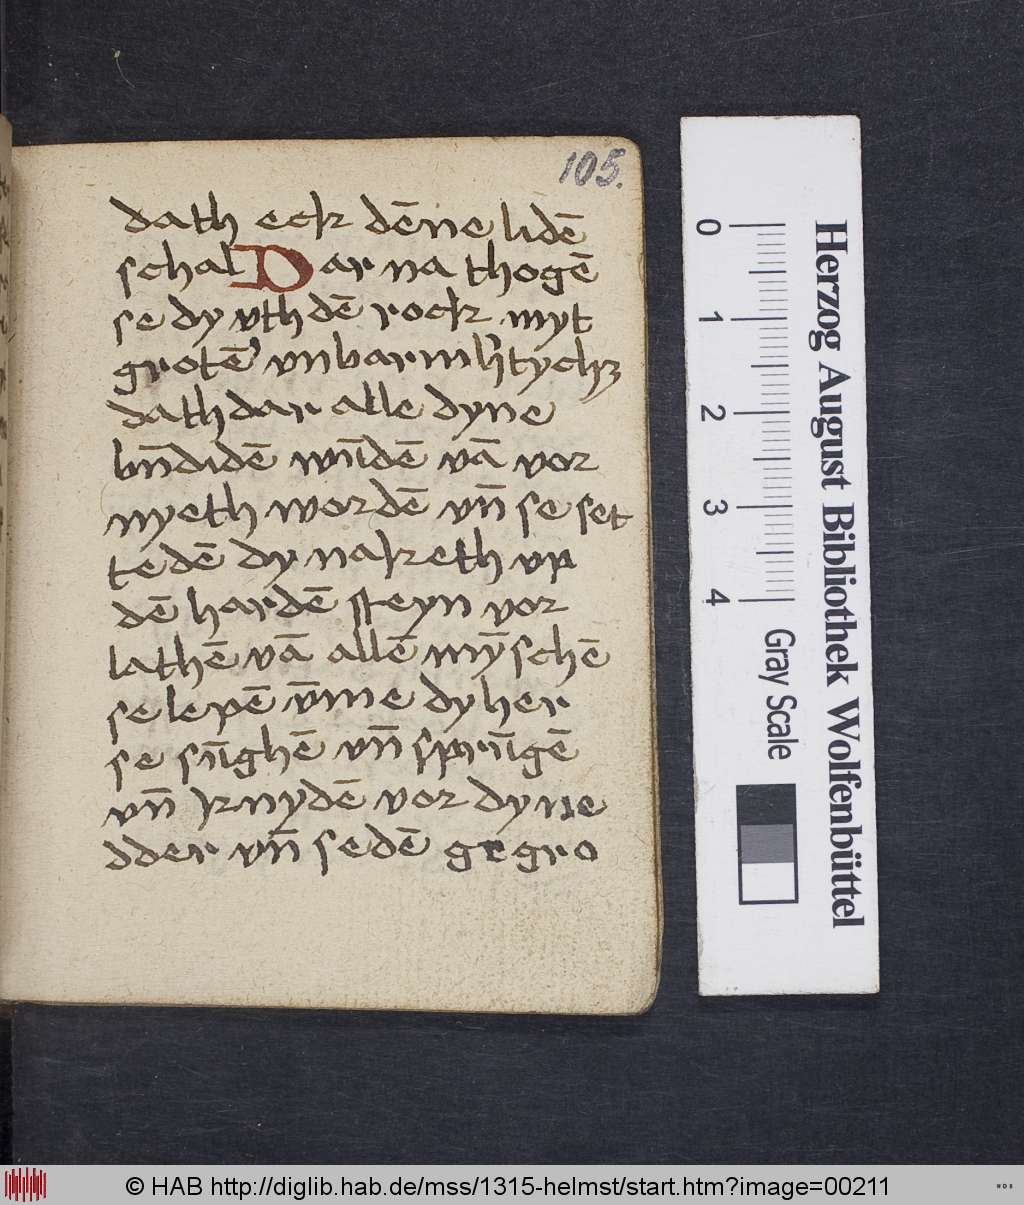 105.
dath eck dēne lidē
schal Dar na thogē
se dy vth dē rock myt
grotē vnbarmh'tychȝ
dath dar alle dyne
bn̄didē wn̄dē vā vor
nyeth wordē vn̄ se set
tedē dy naketh vp
dē hardē steyn vor
lathē vā allē mȳschē
se lepē v̄me dy her
se sn̄ghē vn̄ sprn̄gē
vn̄ knydē vor dyne
dder vn̄ sedē gegro
0 1 2 3 4
Gray Scale
Herzog August Bibliothek Wolfenbüttel
© HAB http://diglib.hab.de/mss/1315-helmst/start.htm?image=00211